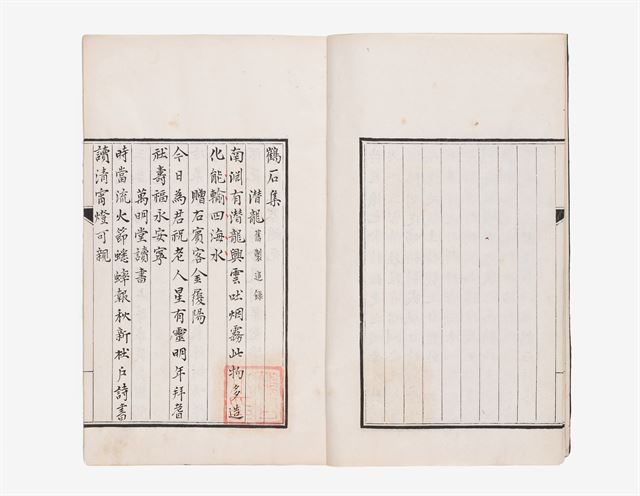 鶴石集
潛龍 舊製追錄
南淵有潛龍興雲吐烟霧此物多造
化能輸四海水
贈石賓客金履陽
今日為君祝老人星有靈明年拜耆
社壽福永安寧
萬明堂讀書
時當流火節蟋蟀報秋新松戶詩書
讀清宵燈可親